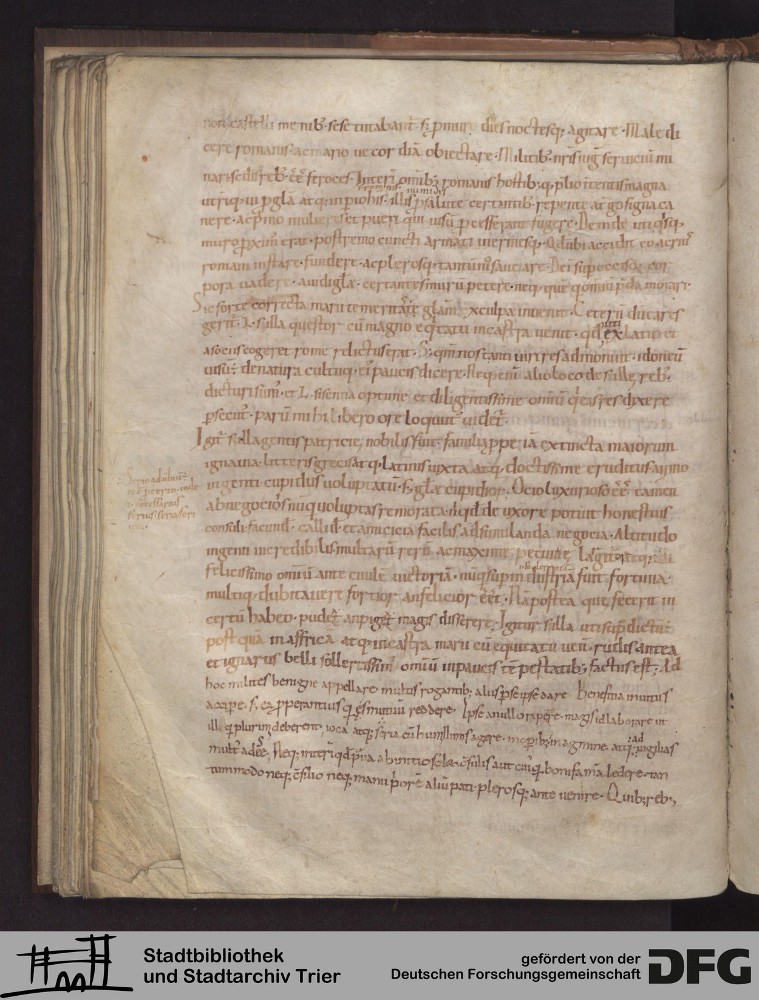 non castelli menib; sese tutabant s; p muro dies noctesq; agitare. Male di
cere romanis ac mario uecordiā obiectare. Militib; nr̄is iuḡ seruiciū mi
nari sedis reb; eē feroces. Interī omīb; romanis hostib; q; p̄lio ītentis magna
utriq; ui p gl̄a atq; inperio his. illis p salute certantib; repente a t̄go signa ca
nere. ac p̄mo mulieres et pueri q̄ in uisū p̄cesserant fugere. Deinde uti q̄sq;
muro p̄xim' erat. postremo cuncti armati inermesq;. Qd ubi accidit eo acri'
romani instare. fundere. ac plerosq; tantūm sauciare. Dei sup occisoꝝ cor
pora uadere. auidi gl̄ae certantes murū petere. neq; quēq̄ omniū p̄da morari.
Sic forte correcta marii temeritas gl̄am ex culpa inuenit. Ceterū dū ea res
gerit̄. L. silla questor cū magno eq̄tatu in castra uenit. qd uti ex latio et
a sociis cogeret rome relictus erat. S; qm̄ nos tanti uiri res admonuit. idoneū
uisū ē de natura cultuq; ei' paucis dicere. Neq; enī alio loco de sillae reb;
dicturi sum'. et L. sisenna optime et diligentissime omniū q̄ eas res dixere
p̄secut'. parū mihi libero ore locut' uidet̄.
Igit̄ silla gentis patricie nobilis fuit. familia ppe iā extincta maiorum
ignauia. litteris grecis atq; latinis iuxta atq; doctissime eruditus animo
ingenti cupidus uoluptatū. s; gl̄ae cupidior. Ocio luxurioso eē. tamen
ab negociis nūq̄ uoluptas remorata. n̄ qd de uxore potuit honestius
consuli. facund'. callid'. et amicicia facilis. ad simulanda negocia. Altitudo
ingenii incredibilis multarū rerū ac maxime pecunie largitor. Atq; illi
felicissimo omniū ante ciuilē uictoriā. nūq̄ sup industriā fuit fortuna
multiq; dubitauere fortior an felicior eēt. Nā postea que fecerit in
certū habeo. pudeat an pigeat magis disserere. Igitur silla uti sup̄ dictū ē
post quā in affrica atq; in castra marii cū equitatu uenit. rudis antea
et ignarus belli sollertissim' omniū in paucis tēpestatib; factus est. Ad
hoc milites benigne appellare. multis rogantib; aliis p se ipse dare. Beneficia inuitus
accipe. s; ea pperantius q̄ ęs mutuū reddere. Ipse ab nullo repetere. magis id laborare ut
illi q̄ plurimi deberent. ioca atq; seria cū humillimis agere. in operib; in agmine. atq; ad uigilias
mult' adeē. Neq; interī qd p̄ua ambitio solet. cōsulis aut cui'q; boni famā ledere. tan
tummodo neq; cōsilio neq; manu priorē aliū pati. plerosq; ante uenire. Quib; reb;
Stadtbibliothek
und Stadtarchiv Trier
gefördert von der
Deutschen Forschungsgemeinschaft
DFG